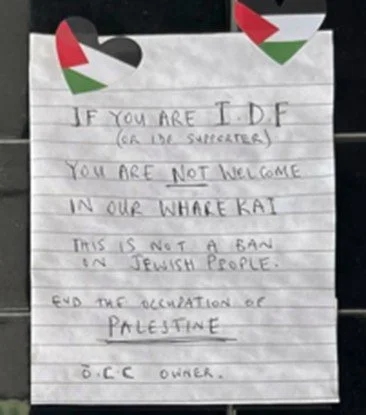 IF YOU ARE I.D.F
(OR IDF SUPPORTER)
YOU ARE NOT WELCOME
IN OUR WHARE KAI
THIS IS NOT A BAN
ON JEWISH PEOPLE.
END THE OCCUPATION OF
PALESTINE
Ō.C.C OWNER.